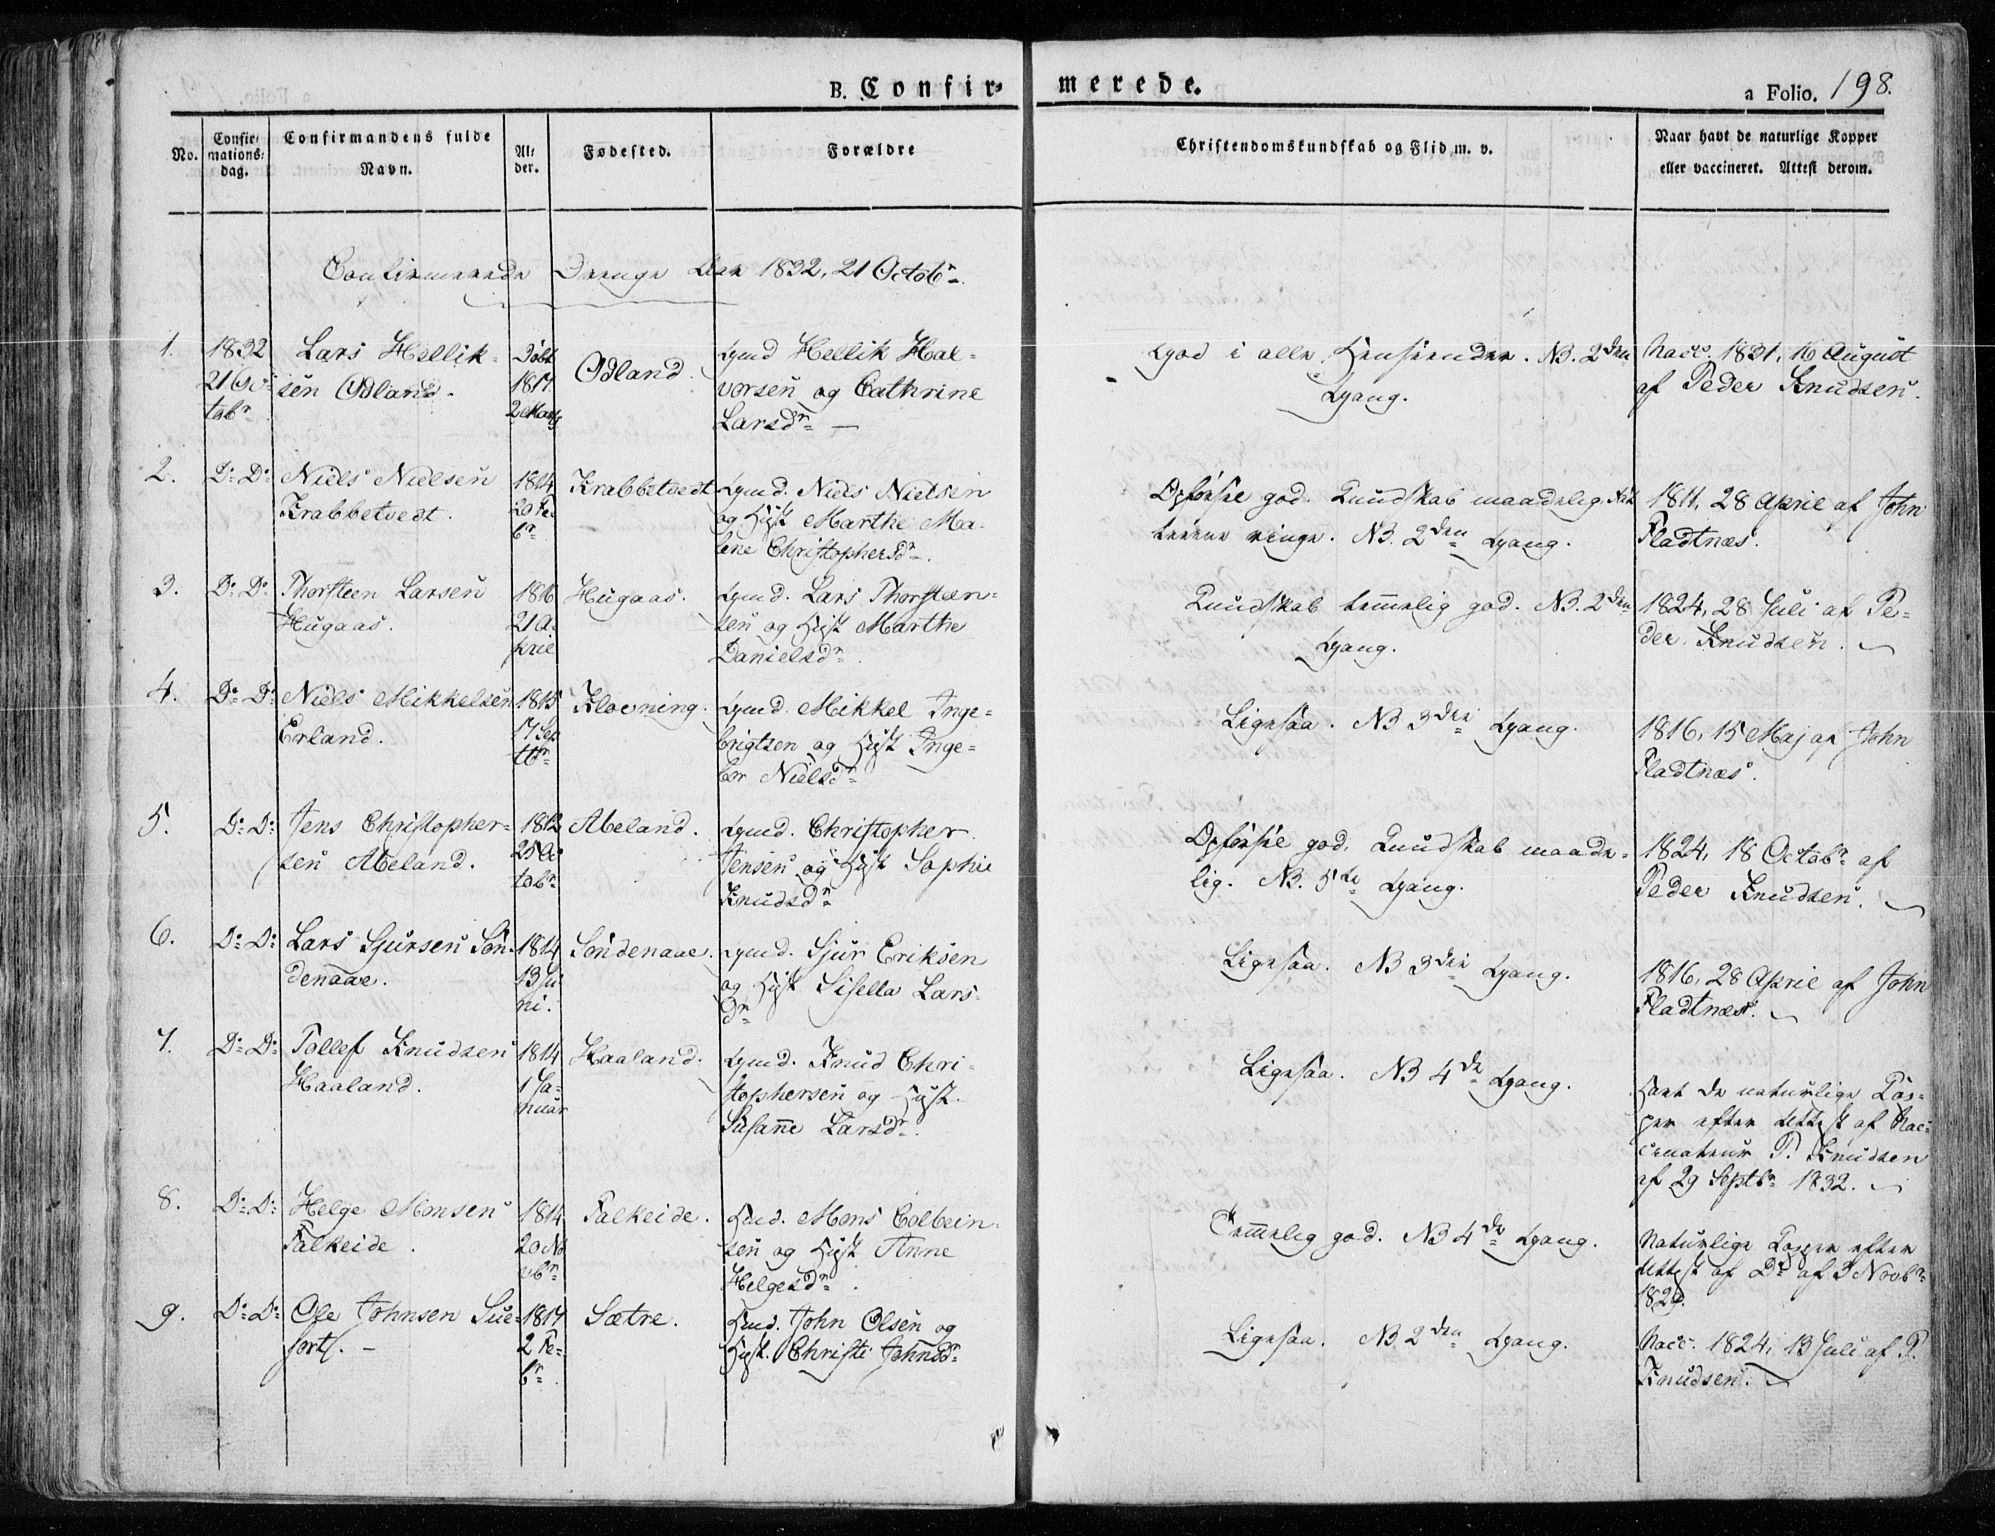 B. Confirmerede.
a Folio. 198.
No.
Confir-
mations-
dag.
Confirmandens fulde
Navn.
Al-
der.
Fødested.
Forældre
Christendomskundskab og Flid m. v.
Naar havt de naturlige Kopper
eller vaccineret. Attest derom.
Confirmerede Drenge Aar 1832, 21 Octobr
1.
1832
21 Oc-
tobr
Lars Hellik-
sen Odland.
Døbt
1817
2 Marts
Odland.
Gmd Hellik Hal-
vorsen og Cathrine
Larsdr —
God i alle Henseender. NB. 2den
Gang.
Vacc. 1831, 16 August
af Peder Knudsen.
2.
Do Do
Niels Nielsen
Krabbetvedt.
1814
20 Fe-
br
Krabbetvedt
Gmd. Niels Nielsen
og Hust Marthe Ma-
lene Christophersdr.
Opførsel god. Kundskab maadelig.
ringe. NB. 2den Gang.
1811, 28 April af John
Fladtnæs.
3.
Do Do
Thorsteen Larsen
Hugaas.
1816
21 A-
pril
Hugaas.
Gmd. Lars Thorsteen-
sen og Hust Marthe
Danielsdr.
Kundskab temmelig god. NB. 2den
Gang.
1824, 28 Juli af Pe-
der Knudsen.
4.
Do Do
Niels Mikkelsen
Erland.
1815
17 Sep
tbr
Klovning.
Gmd. Mikkel Inge-
brigtsen og Hust Inge-
bor Nielsdr
Ligesaa. NB 3die Gang.
1816, 15 Maj af John
Fladtnæs.
5.
Do Do
Jens Christopher-
sen Abeland.
1812
25 Oc
tobr
Abeland.
Gmd. Christopher
Jensen og Hust Sophie
Knudsdr
Opførsel god, Kundskab maade-
lig. NB. 5te Gang.
1824, 18 Octobr af
Peder Knudsen.
6.
Do Do
Lars Sjursen Søn-
denaae.
1814
13 Ju
ni.
Søndenaae.
Gmd. Sjur Eriksen
og Hust Sisella Lars-
dr
Ligesaa. NB 3die Gang.
1816, 28 April af John
Fladtnæs.
7.
Do Do
Tollef Knudsen
Haaland.
1814
1 Ja-
nuar
Haaland.
Gmd. Knud Chri-
stophersen og Hust.
Susanne Larsdr.
Ligesaa. NB 4de Gang.
Havt de naturlige Kop-
per efter Attest af Vac-
cinateur P. Knudsen
af 29 Septbr 1832.
8.
Do Do
Helge Monsen
Falkeide.
1814
20 No
vbr
Falkeide.
Hmd. Mons Colbein-
sen og Hust Anne
Helgesdr.
Temmelig god. NB 4de Gang.
Naturlige Kopper efter
Attest af Do af 3 Novbr
1829.
9.
Do Do
Ole Johnsen Sue-
fort. —
1817
2 Fe-
br
Sætre.
Hmd. John Olsen og
Hust. Christi Johnsdr
Ligesaa. NB 2den Gang.
Vacc. 1824, 13 Juli af P.
Knudsen.